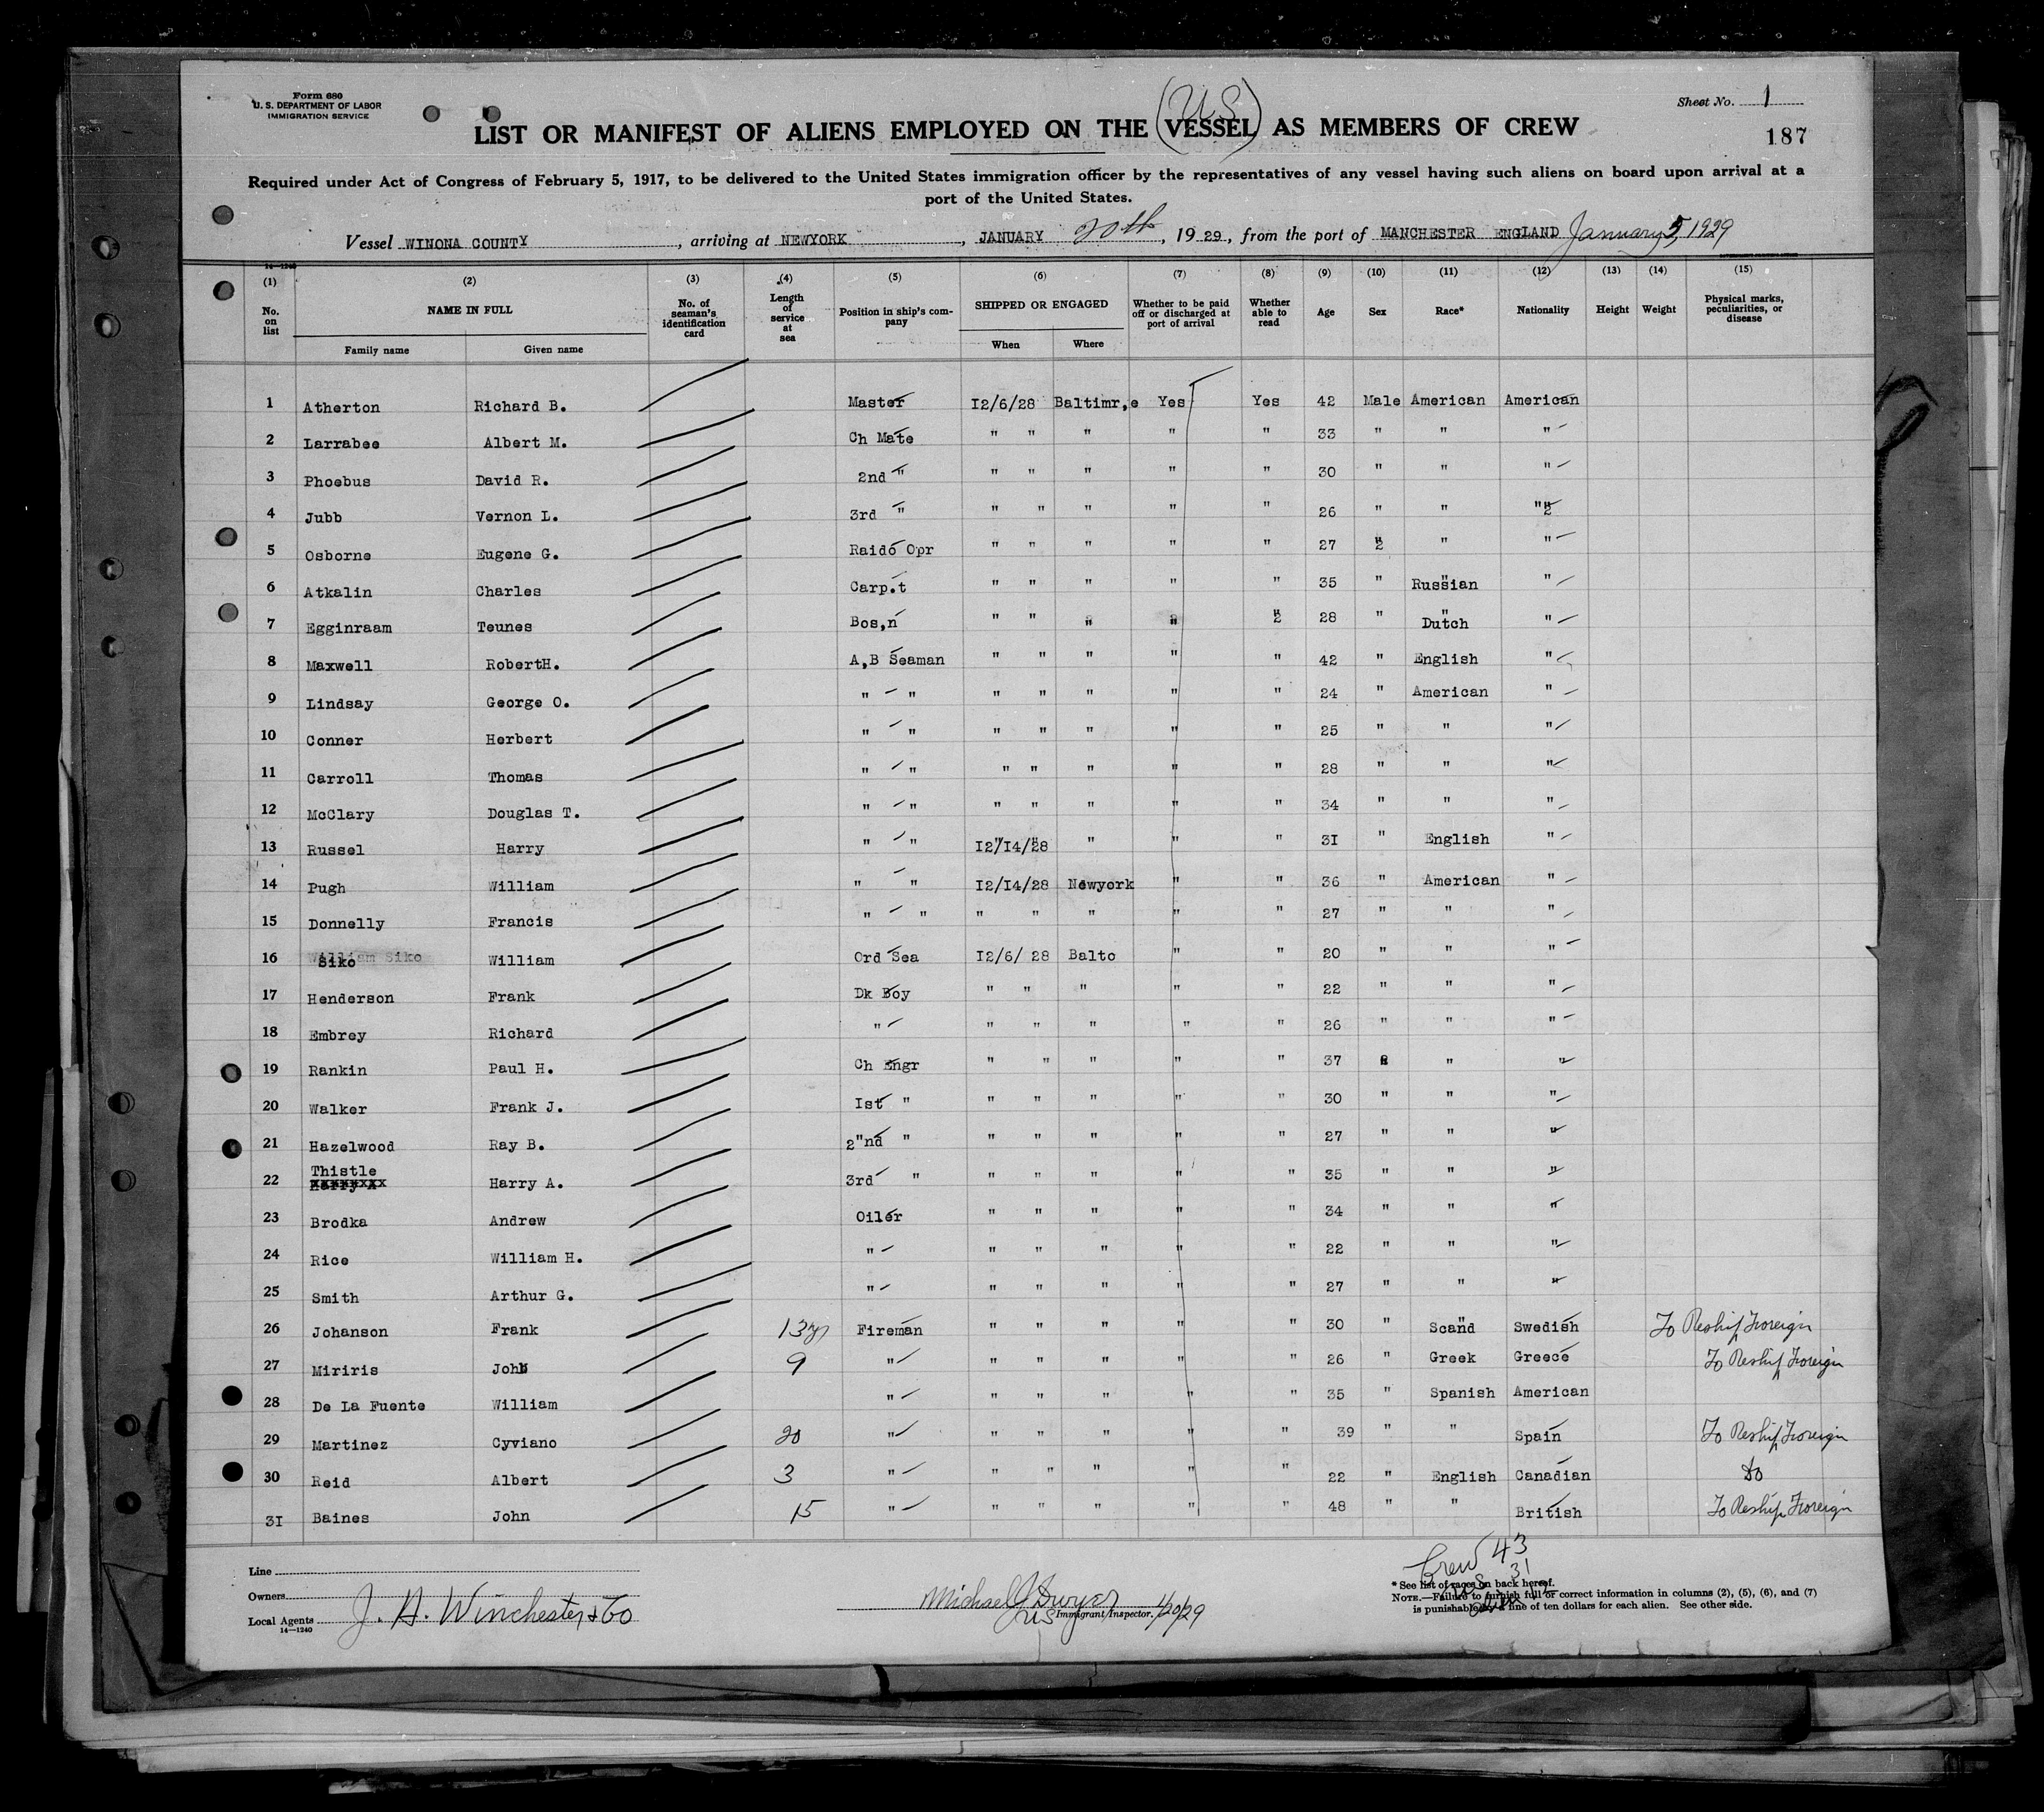 Form 680
U. S. DEPARTMENT OF LABOR
IMMIGRATION SERVICE
Sheet No. 1
(US)
LIST OR MANIFEST OF ALIENS EMPLOYED ON THE VESSEL AS MEMBERS OF CREW
187
Required under Act of Congress of February 5, 1917, to be delivered to the United States immigration officer by the representatives of any vessel having such aliens on board upon arrival at a
port of the United States.
Vessel WINONA COUNTY, arriving at NEWYORK, JANUARY 20th, 1929, from the port of MANCHESTER ENGLAND January 5, 1929
14—1240
(1) (2) (3) (4) (5) (6) (7) (8) (9) (10) (11) (12) (13) (14) (15)
No. on list NAME IN FULL Family name Given name No. of seaman's identification card Length of service at sea Position in ship's company SHIPPED OR ENGAGED When Where Whether to be paid off or discharged at port of arrival Whether able to read Age Sex Race* Nationality Height Weight Physical marks, peculiarities, or disease
1 Atherton Richard B. Master I2/6/28 Baltimr,e Yes Yes 42 Male American American
2 Larrabee Albert M. Ch Mate " " " " " 33 " " "
3 Phoebus David R. 2nd " " " " " " 30 " " "
4 Jubb Vernon L. 3rd " " " " " " 26 " " "
5 Osborne Eugene G. Raido Opr " " " " " 27 " " "
6 Atkalin Charles Carp.t " " " " " 35 " Russian "
7 Egginraam Teunes Bos,n " " " " " 28 " Dutch "
8 Maxwell RobertH. A,B Seaman " " " " " 42 " English "
9 Lindsay George O. " " " " " " " 24 " American "
10 Conner Herbert " " " " " " " 25 " " "
11 Carroll Thomas " " " " " " " 28 " " "
12 McClary Douglas T. " " " " " " " 34 " " "
13 Russel Harry " " I2/I4/28 " " " 3I " English "
14 Pugh William " " I2/I4/28 Newyork " " 36 " American "
15 Donnelly Francis " " " " " " " 27 " " "
16 Siko William Ord Sea I2/6/ 28 Balto " " 20 " " "
17 Henderson Frank Dk Boy " " " " " 22 " " "
18 Embrey Richard " " " " " " 26 " " "
19 Rankin Paul H. Ch Engr " " " " " 37 " " "
20 Walker Frank J. Ist " " " " " " 30 " " "
21 Hazelwood Ray B. 2"nd " " " " " " 27 " " "
22 Thistle Harry A. 3rd " " " " " " 35 " " "
23 Brodka Andrew Oiler " " " " " 34 " " "
24 Rice William H. " " " " " " 22 " " "
25 Smith Arthur G. " " " " " " 27 " " "
26 Johanson Frank 13 Fireman " " " " " 30 " Scand Swedish To Reship Foreign
27 Miriris John 9 " " " " " " 26 " Greek Greece To Reship Foreign
28 De La Fuente William " " " " " " 35 " Spanish American
29 Martinez Cyviano 20 " " " " " " 39 " " Spain To Reship Foreign
30 Reid Albert 3 " " " " " " 22 " English Canadian do
3I Baines John 15 " " " " " " 48 " " British To Reship Foreign
Line
Owners
Local Agents J. H. Winchester & Co
14—1240
Michael J Dwyer
US Immigrant Inspector. 1/20/29
Crew 43
US 31
12
* See list of races on back hereof.
NOTE.—Failure to furnish full or correct information in columns (2), (5), (6), and (7)
is punishable by a fine of ten dollars for each alien. See other side.